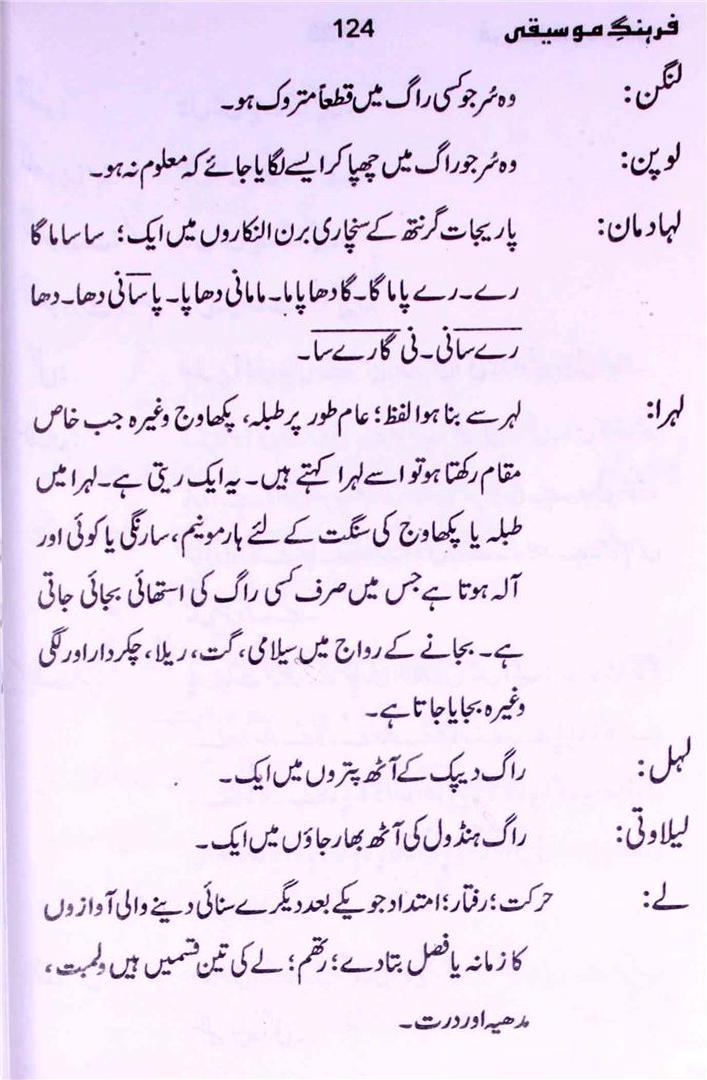 فرہنگِ موسیقی 124
لنگن: وہ سُر جو کسی راگ میں قطعاً متروک ہو۔
لوپن: وہ سُر جو راگ میں چھپا کر ایسے لگایا جائے کہ معلوم نہ ہو۔
لہادمان: پاریجات گرنتھ کے سنچاری برن النکاروں میں ایک؛ سا سا ما گا
رے۔ رے پا ما گا۔ گا دھا پا ما۔ ما ما نی دھا پا۔ پا سا نی دھا۔ دھا
رے سا نی۔ نی گا رے سا۔
لہرا: لہر سے بنا ہوا لفظ؛ عام طور پر طبلہ، پکھاوج وغیرہ جب خاص
مقام رکھتا ہو تو اسے لہرا کہتے ہیں۔ یہ ایک ریتی ہے۔ لہرا میں
طبلہ یا پکھاوج کی سنگت کے لئے ہارمونیم، سارنگی یا کوئی اور
آلہ ہوتا ہے جس میں صرف کسی راگ کی استھائی بجائی جاتی
ہے۔ بجانے کے رواج میں سیلامی، گت، ریلا، چکردار اور لگی
وغیرہ بجایا جاتا ہے۔
لہل: راگ دیپک کے آٹھ پتروں میں ایک۔
لیلاوتی: راگ ہنڈول کی آٹھ بھارجاؤں میں ایک۔
لے: حرکت؛ رفتار؛ امتداد جو یکے بعد دیگرے سنائی دینے والی آوازوں
کا زمانہ یا فصل بتا دے؛ رتھم؛ لے کی تین قسمیں ہیں ولمبت،
مدھیہ اور درت۔